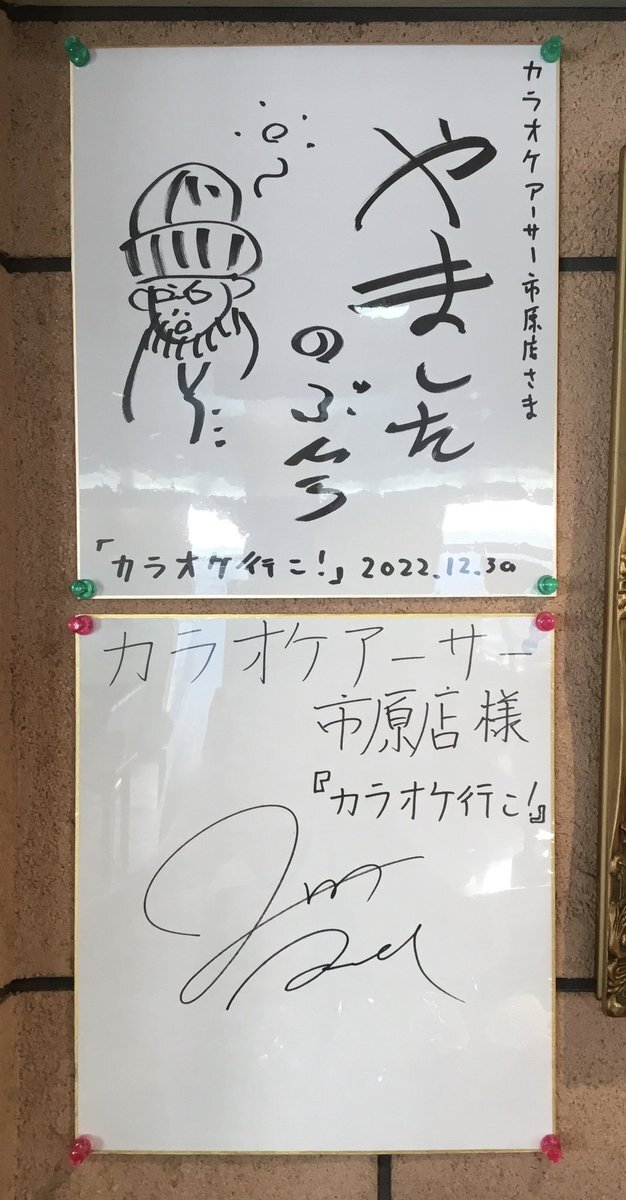 カラオケアーサー市原店さま
やました
のぶひろ
「カラオケ行こ!」 2022.12.30
カラオケアーサー
市原店様
『カラオケ行こ!』